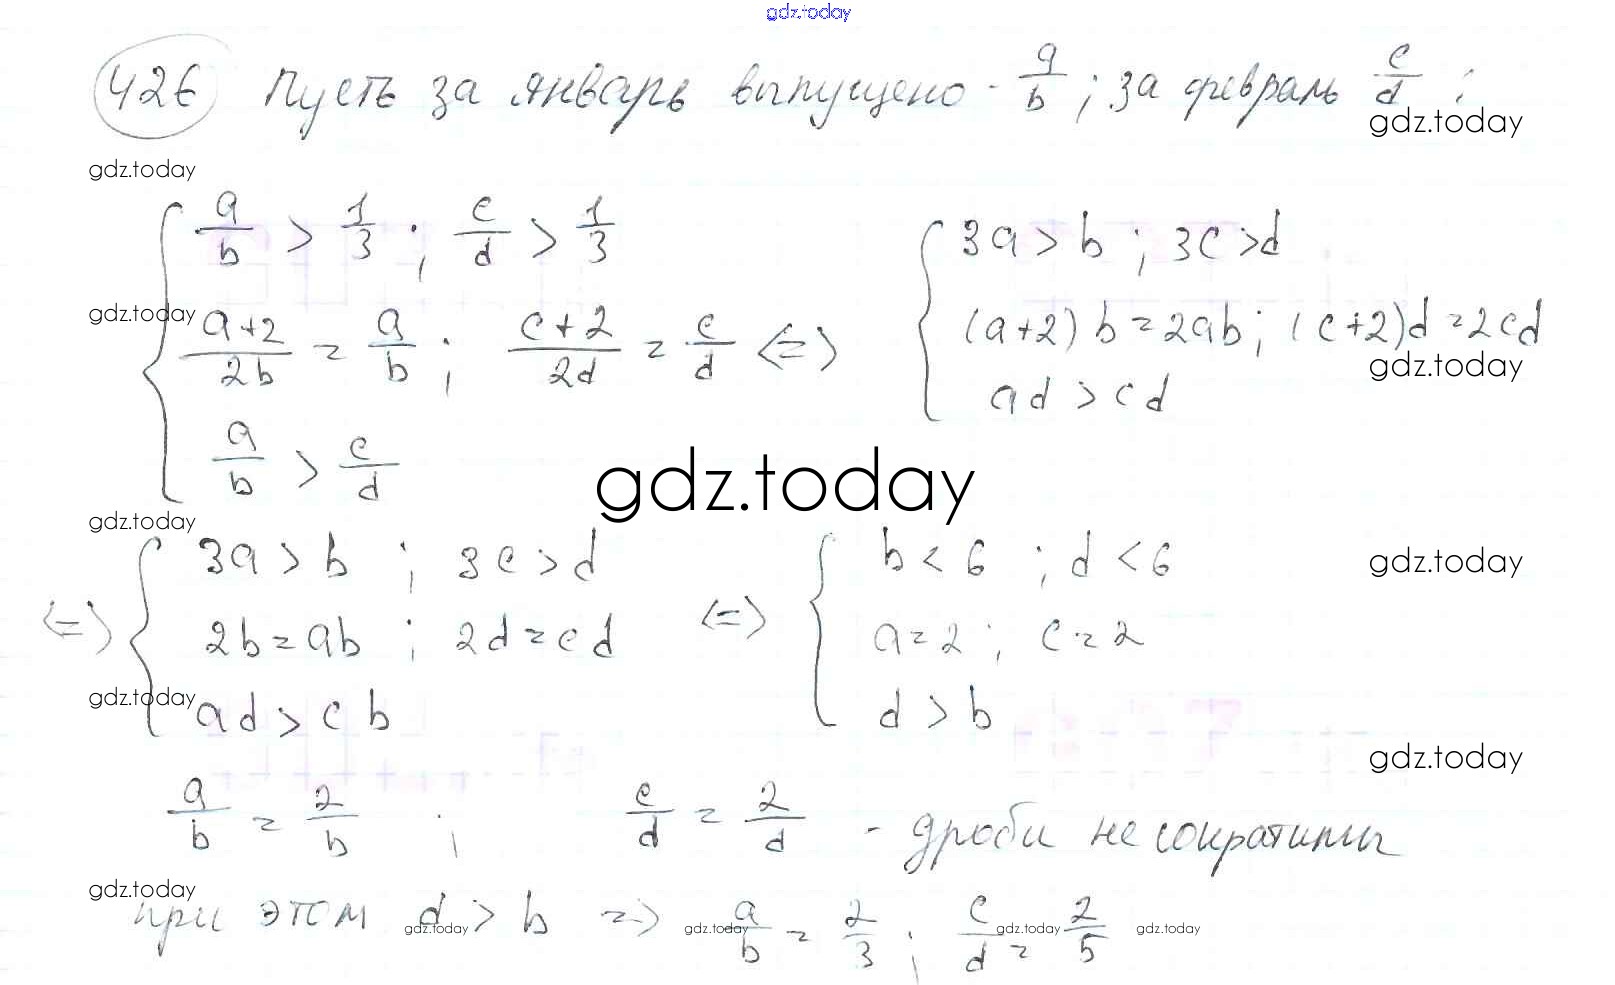 gdz.today
426 Пусть за январь выпущено - a/b ; за февраль c/d ;
gdz.today
gdz.today
{ a/b > 1/3 ; c/d > 1/3
{ 3a > b ; 3c > d
gdz.today
(a+2)/2b = a/b ; (c+2)/2d = c/d <=>
(a+2)b = 2ab ; (c+2)d = 2cd
gdz.today
a/b > c/d
ad > cd
gdz.today
gdz.today
<=> { 3a > b ; 3c > d
<=> { b < 6 ; d < 6
gdz.today
2b = ab ; 2d = cd
a = 2 ; c = 2
gdz.today
ad > cb
d > b
gdz.today
a/b = 2/b ; c/d = 2/d - дроби не сократимы
gdz.today
при этом d > b => a/b = 2/3 ; c/d = 2/5
gdz.today gdz.today gdz.today gdz.today